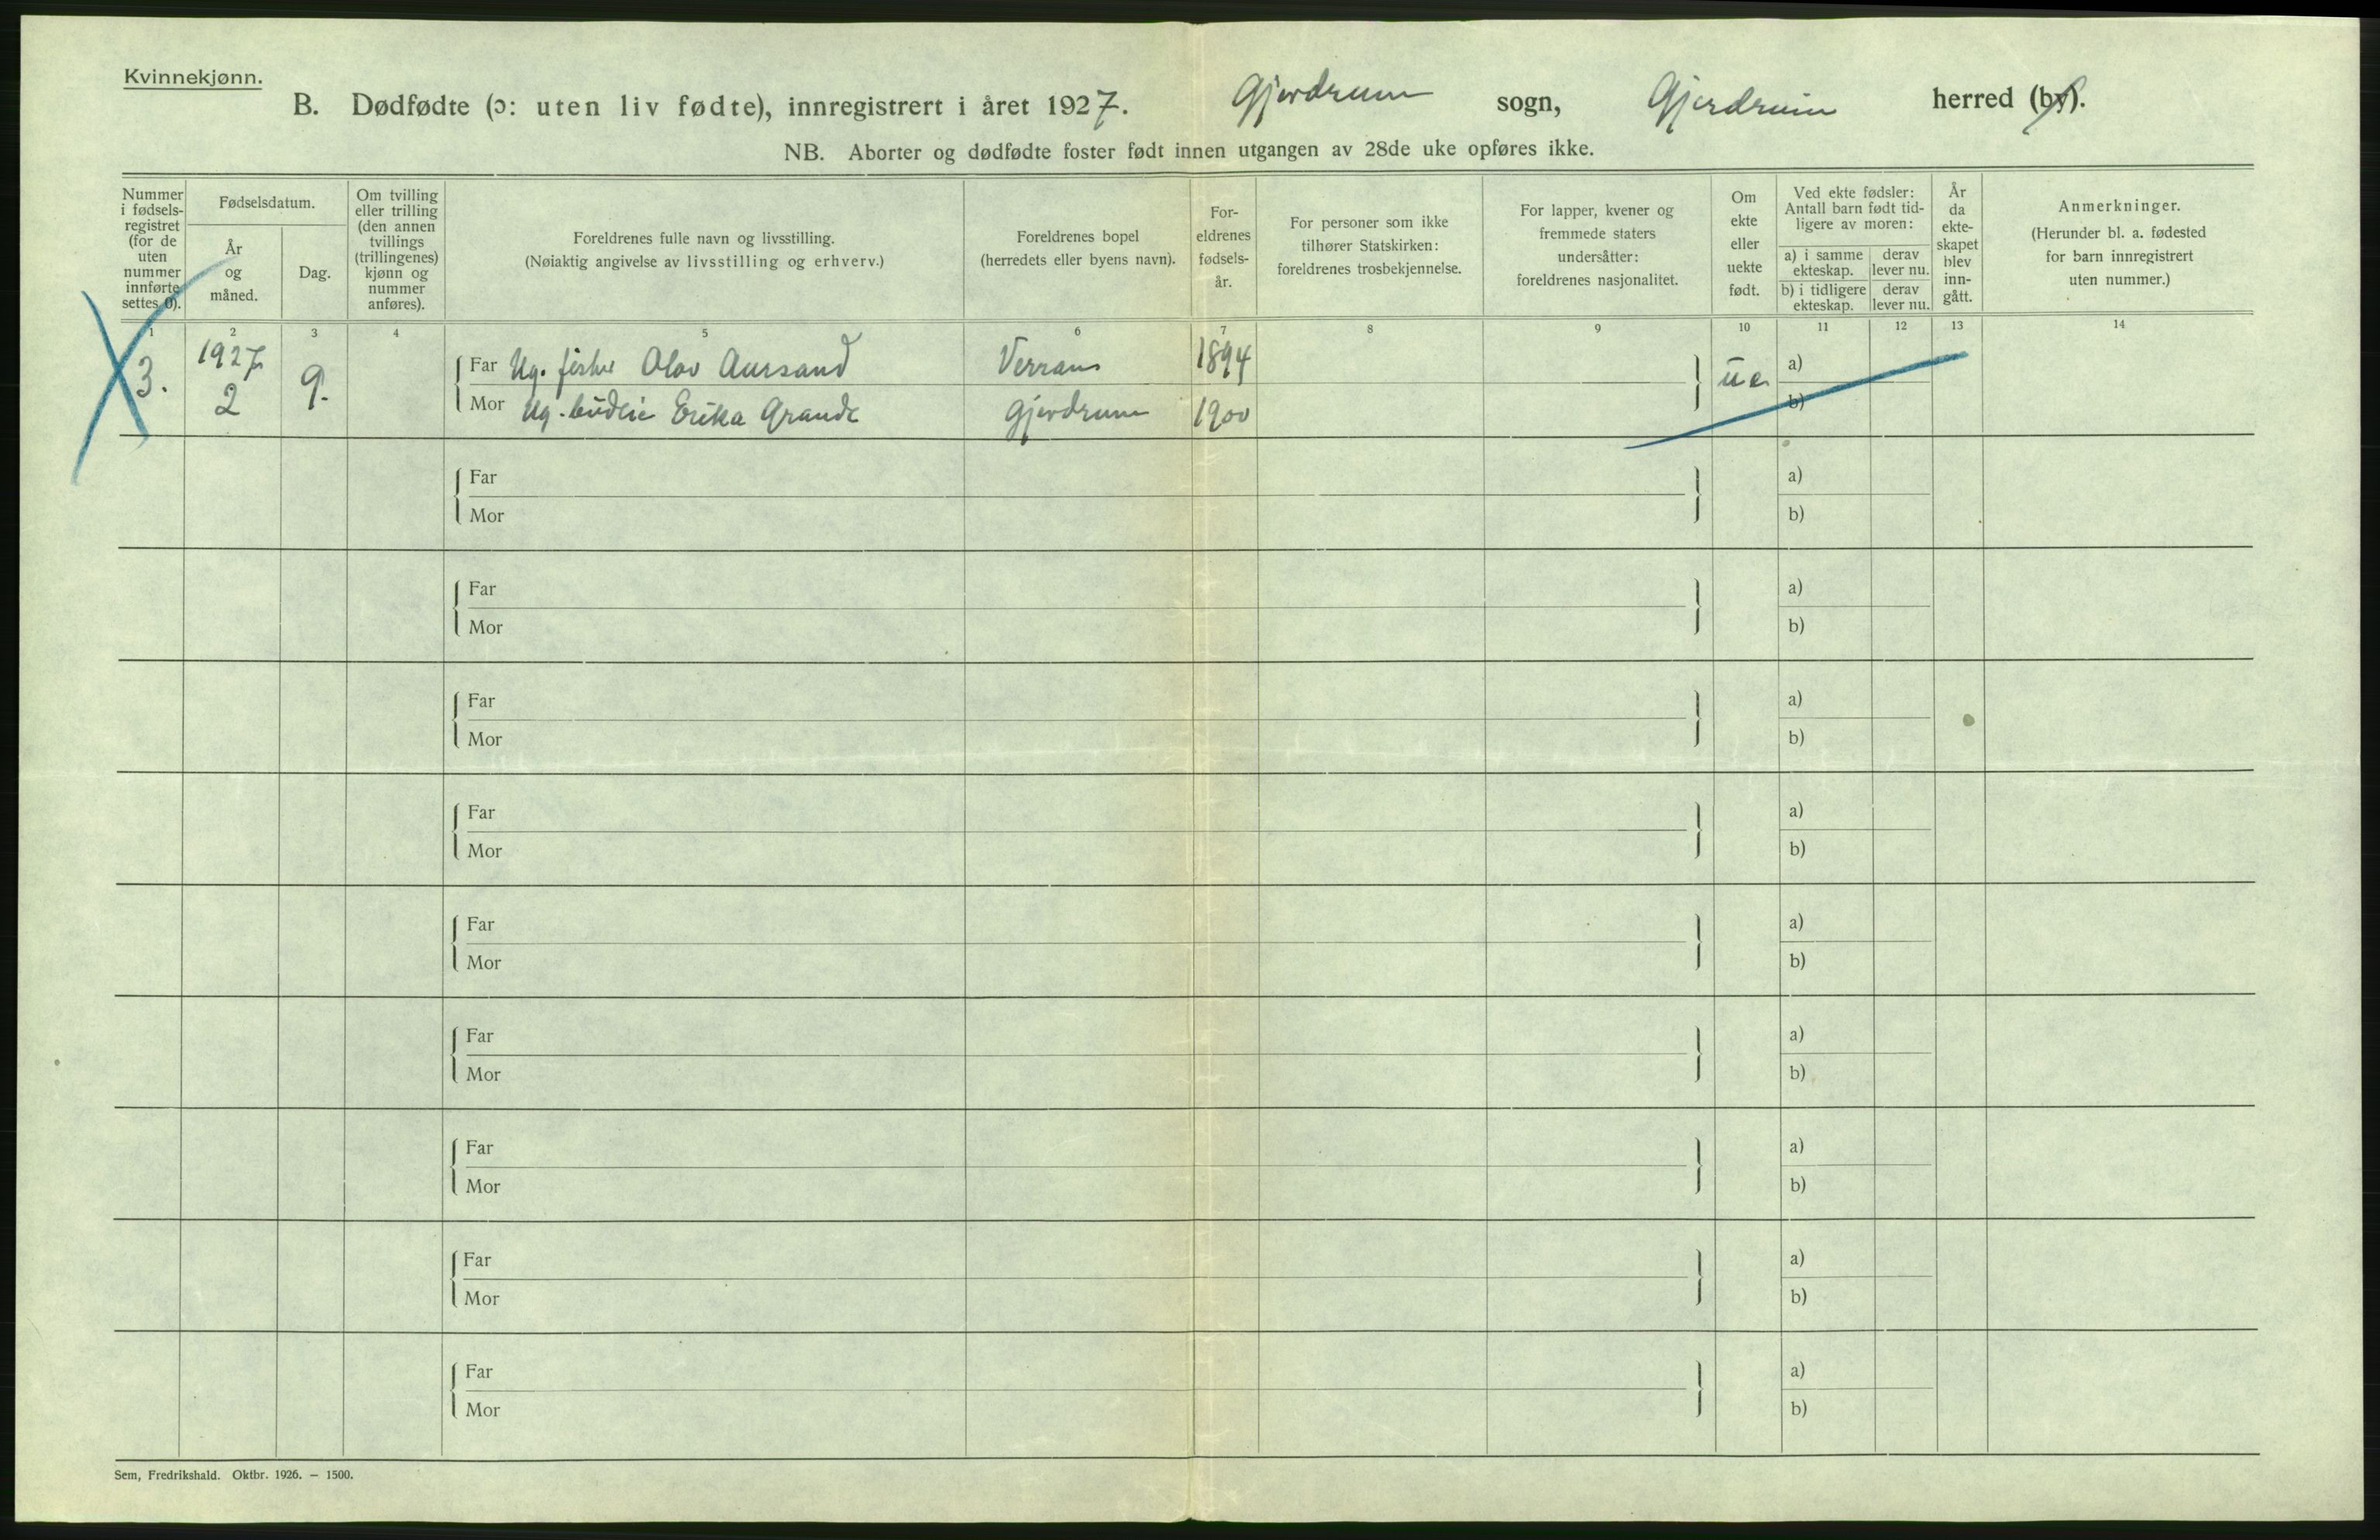 Kvinnekjønn.
B. Dødfødte (ɔ: uten liv fødte), innregistrert i året 1927. Gjerdrum sogn, Gjerdrum herred (by).
NB. Aborter og dødfødte foster født innen utgangen av 28de uke opføres ikke.
Nummer
i fødsels-
registret
(for de
uten
nummer
innførte
settes 0).
Fødselsdatum.
År
og
måned.
Dag.
Om tvilling
eller trilling
(den annen
tvillings
(trillingenes)
kjønn og
nummer
anføres).
Foreldrenes fulle navn og livsstilling.
(Nøiaktig angivelse av livsstilling og erhverv.)
Foreldrenes bopel
(herredets eller byens navn).
For-
eldrenes
fødsels-
år.
For personer som ikke
tilhører Statskirken:
foreldrenes trosbekjennelse.
For lapper, kvener og
fremmede staters
undersåtter:
foreldrenes nasjonalitet.
Om
ekte
eller
uekte
født.
Ved ekte fødsler:
Antall barn født tid-
ligere av moren:
a) i samme
ekteskap.
derav
lever nu.
b) i tidligere
ekteskap.
derav
lever nu.
År
da
ekte-
skapet
blev
inn-
gått.
Anmerkninger.
(Herunder bl. a. fødested
for barn innregistrert
uten nummer.)
1 2 3 4 5 6 7 8 9 10 11 12 13 14
3. 1927 2 9. Far Ug. fisker Olav Aursand Verran 1894 ue a)
Mor Ug. budeie Erika Grande Gjerdrum 1900 b)
Far a)
Mor b)
Far a)
Mor b)
Far a)
Mor b)
Far a)
Mor b)
Far a)
Mor b)
Far a)
Mor b)
Far a)
Mor b)
Far a)
Mor b)
Far a)
Mor b)
Sem, Fredrikshald. Oktbr. 1926. — 1500.